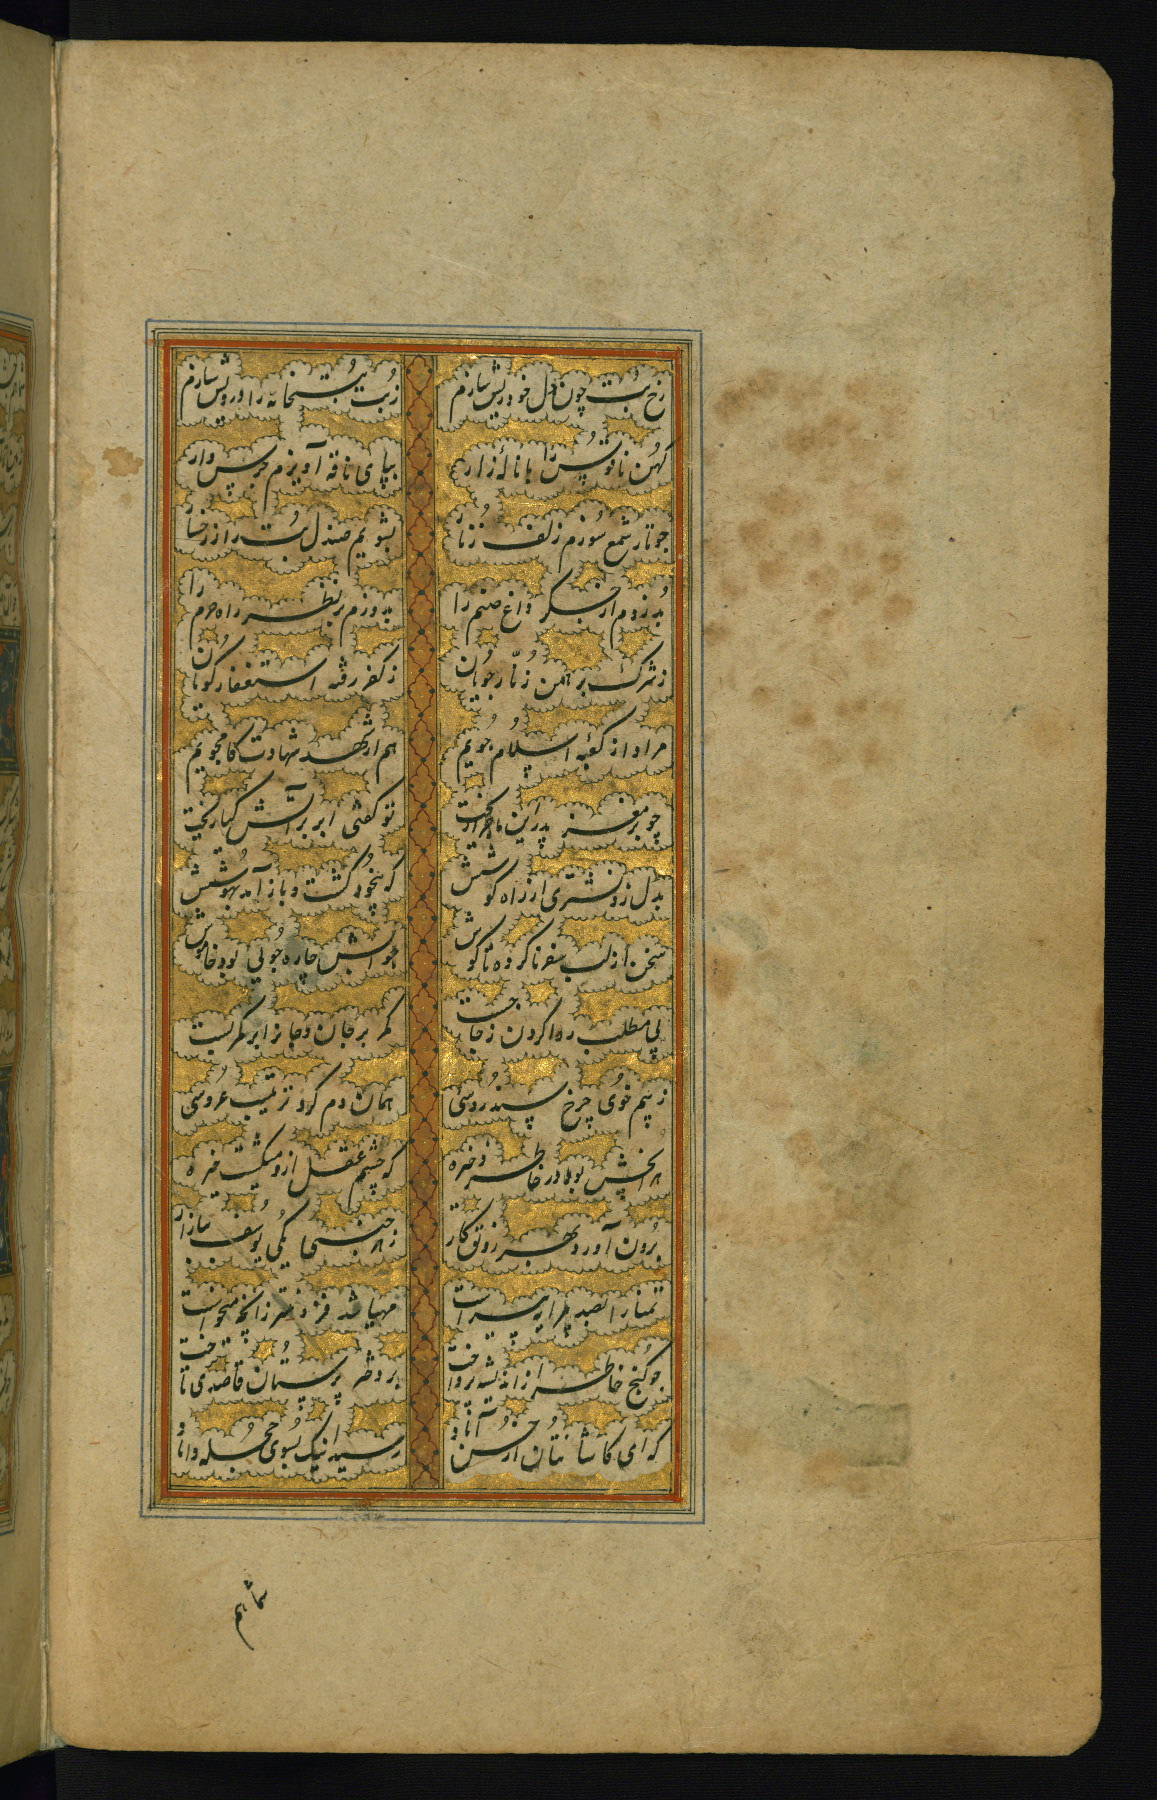 رخ بت چون دل خود ریش سازم
ز بت بتخانه را درویش سازم
کهن ناقوس را با نالهٔ زار
بپای ناقه آویزم جرس وار
چو تار شمع سوزم زلف زنار
بشویم صندل بت را ز رخسار
بدزدم از جگر داغ صنم را
بدوزم بر نظر راه حرم را
ز شرک برهمن زنار جویان
ز کفر رفته استغفار گویان
مراد از کعبهٔ اسلام جویم
هم از شهد شهادت کام جویم
چو بر مغز پدر این ماجرا ریخت
تو گفتی ابر بر آتش گیا ریخت
بدل زد نشتری از راه گوشش
که بیخود گشت و باز آمد بهوشش
سخن از لب سفر ناکرده تا گوش
جوابش چاره جویی بود خاموش
پی مطلب روا کردن ز جا جست
کمر بر جان و جان را بر کمر بست
ز بیم خوی چرخ سندروسی
همان دم کرد ترتیب عروسی
هر آنچش بود در خاطر ذخیره
که چشم عقل ازو میگشت خیره
برون آورد بهر زونق کار
ز هر جنسی یکی یوسف ببازار
تمنا را بصد پیرایه پیراست
مهیا شد فزونتر زانچه میخواست
چو گنج خاطر از اندیشه پرداخت
برودشه پرستان قاصدی تاخت
که ای کاشانتان از حسن آباد
رسید اینک بسوی حجله داماد
شما هم